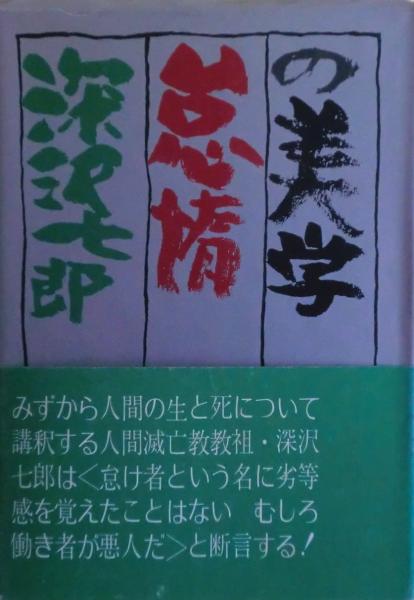 怠惰
の美学
深沢七郎
みずから人間の生と死について
講釈する人間滅亡教教祖・深沢
七郎は<怠け者という名に劣等
感を覚えたことはない　むしろ
働き者が悪人だ>と断言する!